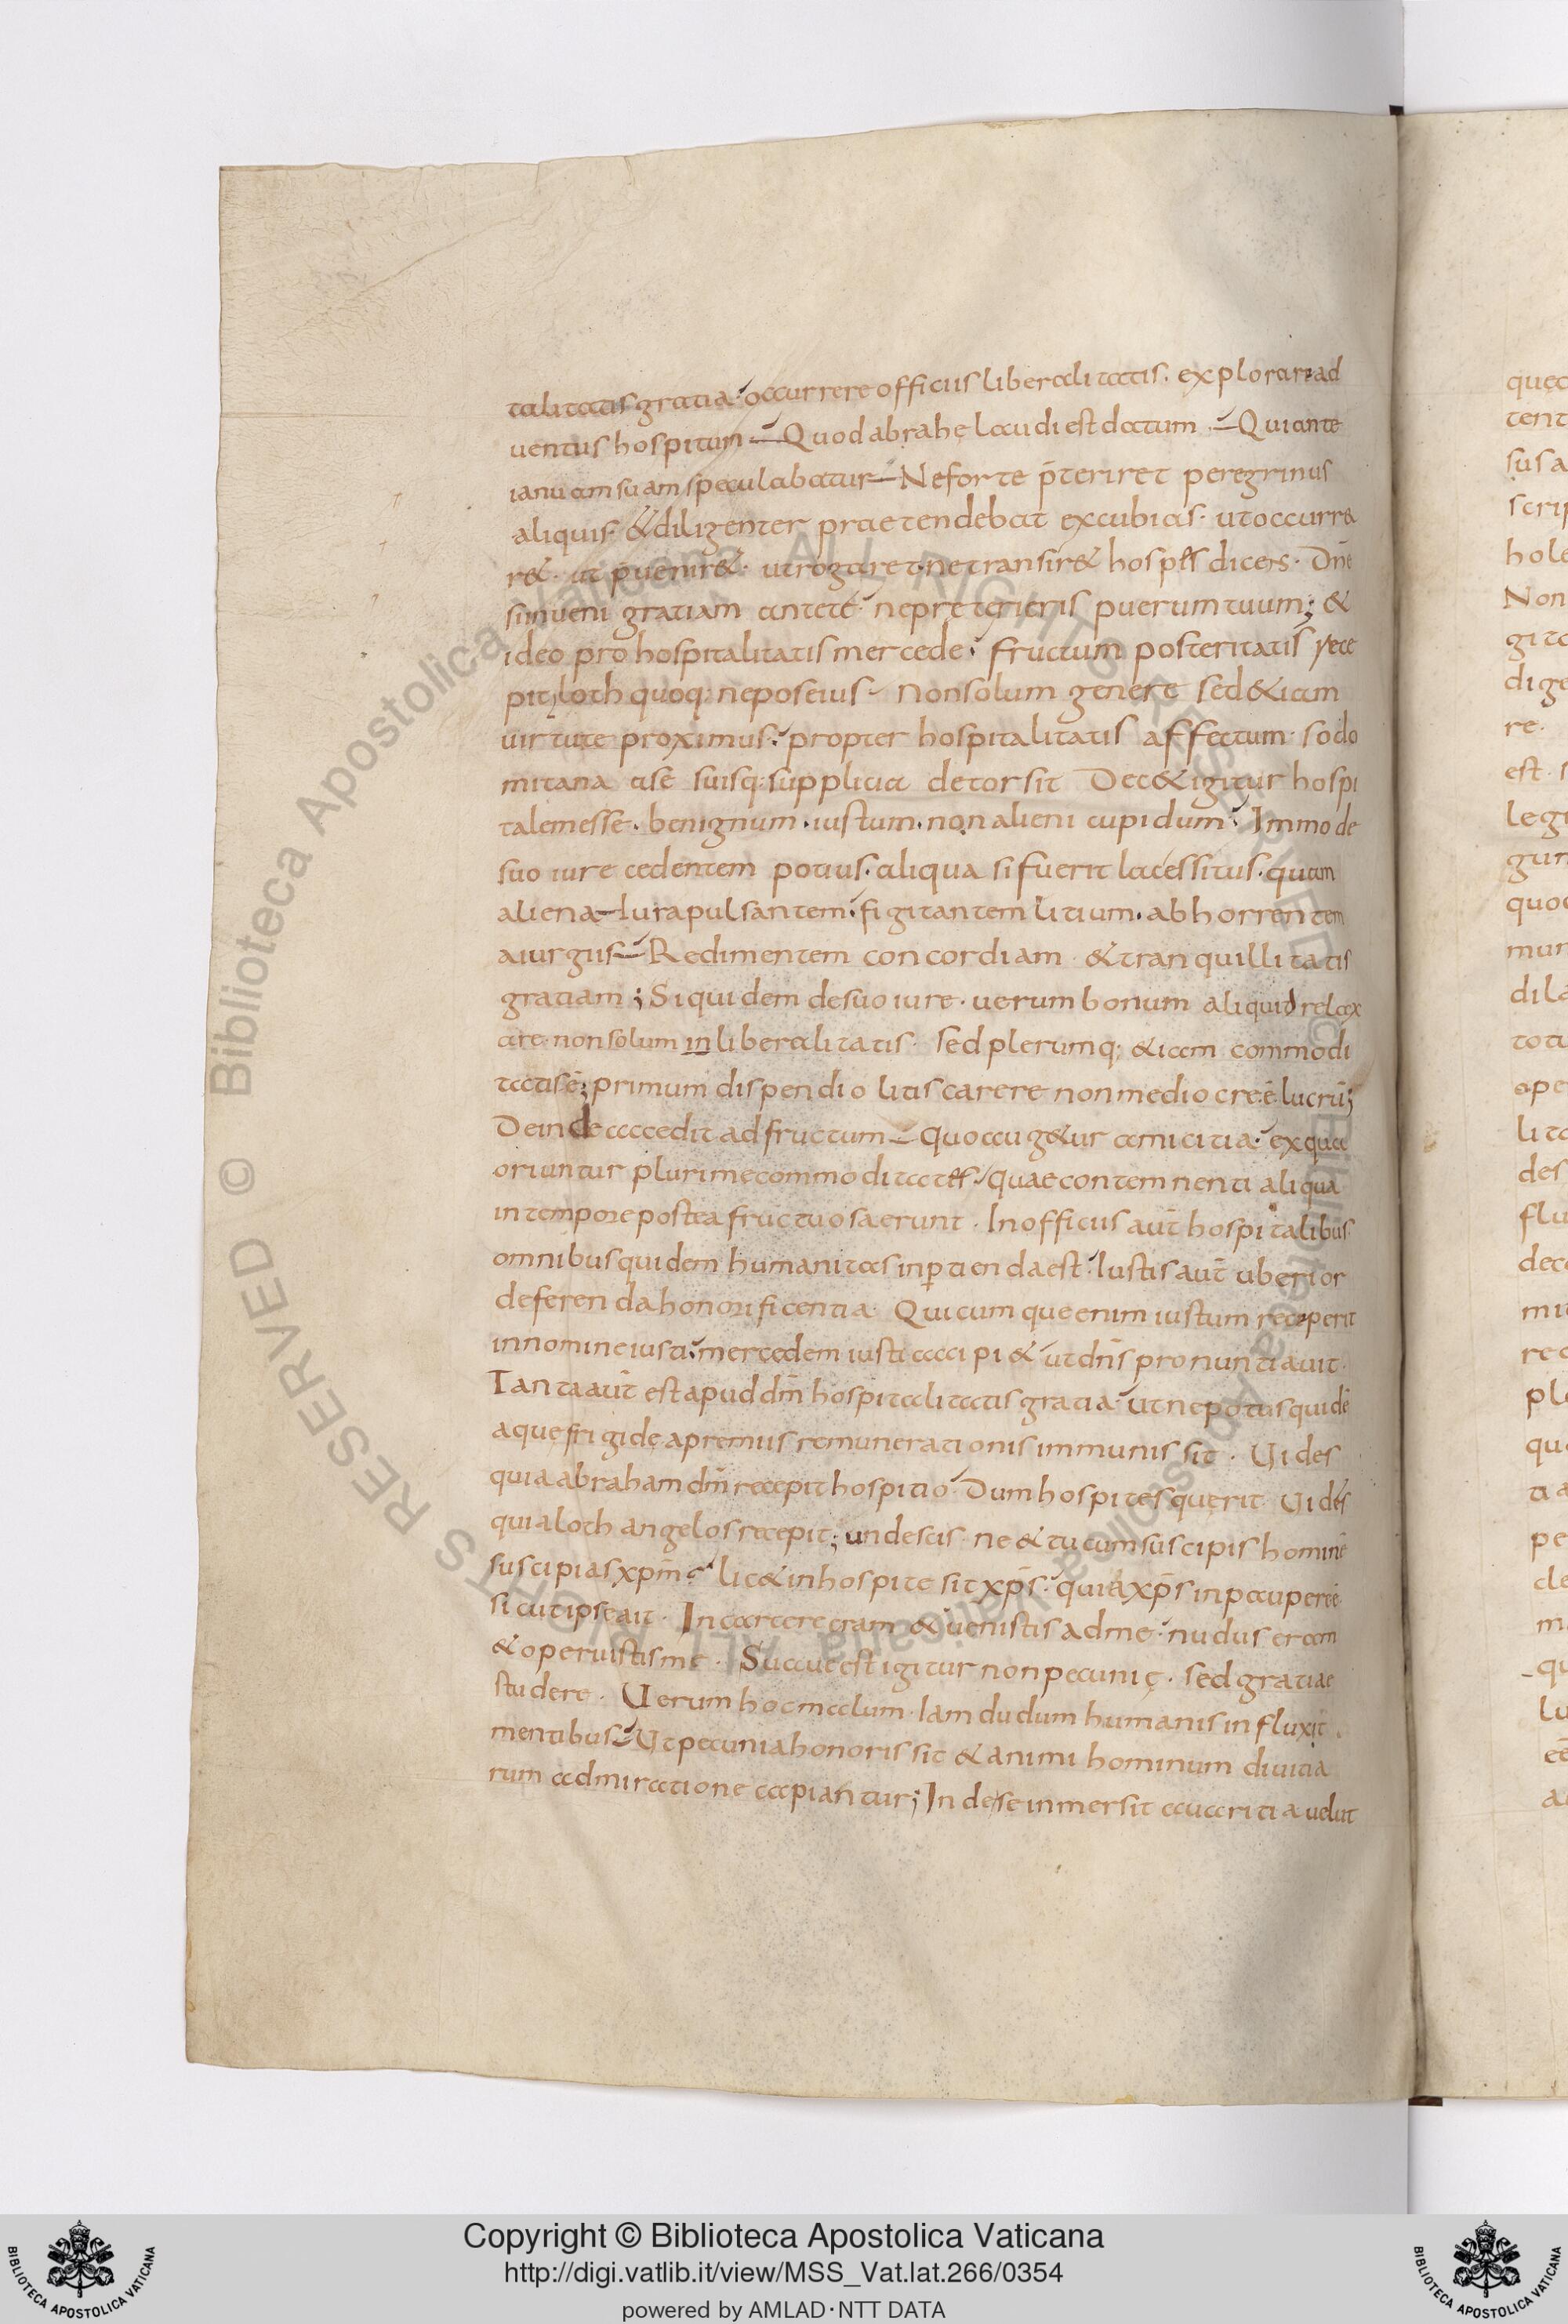 talitatis gratia occurrere officiis liberalitatis. explorare ad
uentus hospitum Quod abrahę laudi est datum. Qui ante
ianuam suam speculabatur Ne forte p̄teriret peregrinus
aliquis. & diligenter praetendebat excubias. ut occurre
r&. ut p̄uenir&. ut rogaret. ne transir& hospes dicens. Dn̄e
si inueni gratiam ante te ne preterieris puerum tuum; &
ideo pro hospitalitatis mercede. fructum posteritatis rece
pit; loth quoq: nepos eius. non solum genere sed &iam
uirtute proximus. propter hospitalitatis affectum. sodo
mitana a se suisq: supplicia detorsit Dec& igitur hospi
talem esse. benignum. iustum. non alieni cupidum. Immo de
suo iure cedentem potius. aliqua si fuerit lacessitus. quam
aliena Iura pulsantem. figitantem litium. abhorrentem
a iurgiis Redimentem concordiam & tranquillitatis
gratiam; Siquidem de suo iure. uerum bonum aliquid relax
are non solum in liberalitatis. sed plerumq; &iam commodi
tatis ē; primum dispendio litis carere non mediocre ē lucrū;
Deinde accedit ad fructum quo aug&ur amicitia. ex qua
oriuntur plurime commoditates. quae contemnenti aliqua
in tempore postea fructuosa erunt. In officiis aut̄ hospitalibus
omnibus quidem humanitas inp̱tienda est. Iustis aut̄ uberior
deferenda honorificentia. Quicumque enim iustum receperit
in nomine iusti. mercedem iusti accipi& ut dn̄s pronuntiauit.
Tanta aut̄ est apud dm̄ hospitalitatis gratia. ut ne potus quidē
aque frigidę a premiis remunerationis immunis sit. Uides
quia abraham dm̄ recepit hospitio. Dum hospites querit. Uides
quia loth angelos recepit; unde scis ne & tu cum suscipis hominē
suscipias xp̄m lic& in hospite sit xp̄s. quia xp̄s in paupere ē
sicut ipse ait. In carcere eram & uenistis ad me. nudus eram
& operuistis me. Suaue est igitur non pecunię. sed gratiae
studere. Uerum hoc malum. Iam dudum humanis influxit.
mentibus. Ut pecunia honoris sit & animi hominum diuitia
rum admiratione capiantur; Inde se inmersit auaritia uelut
Copyright © Biblioteca Apostolica Vaticana
http://digi.vatlib.it/view/MSS_Vat.lat.266/0354
powered by AMLAD·NTT DATA